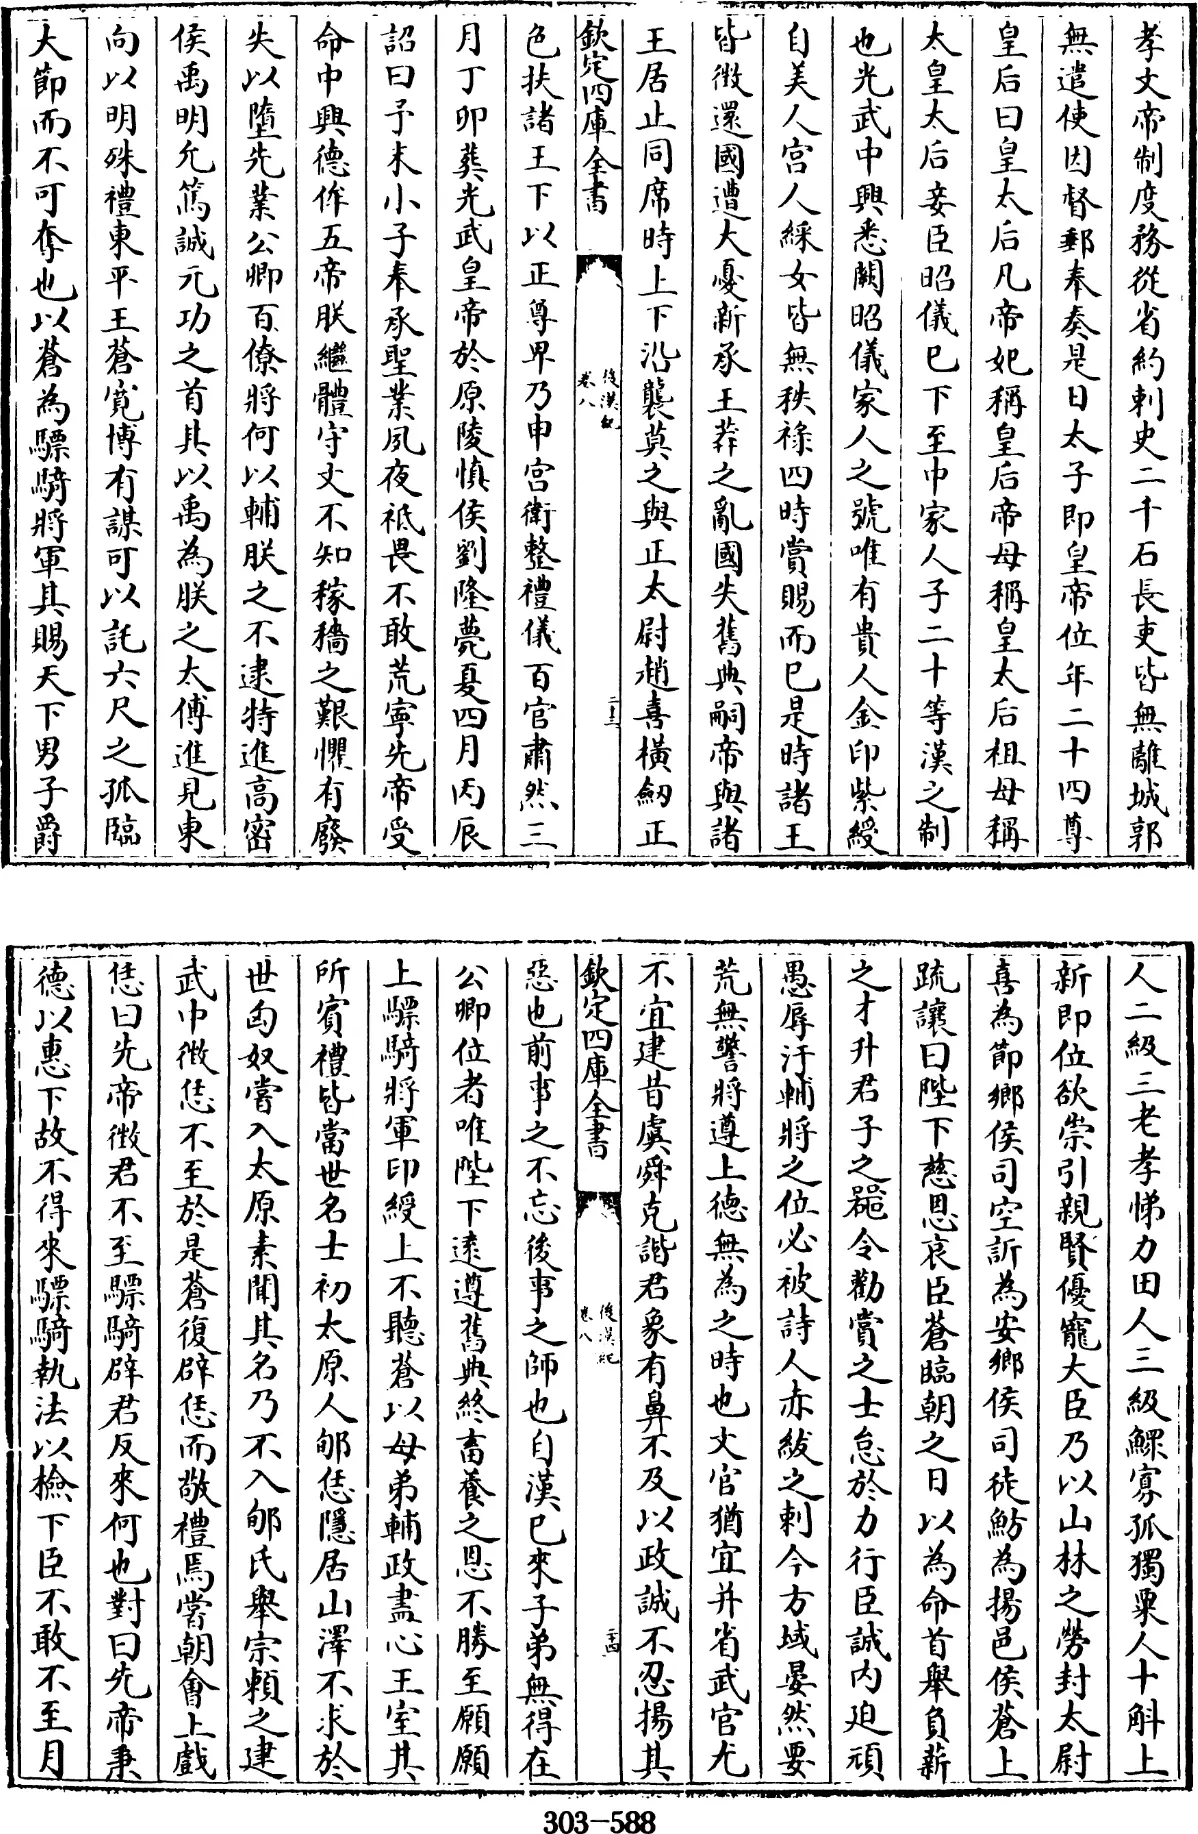 孝文帝制度務從省約刺史二千石長吏皆無離城郭
無遣使因督郵奉奏是日太子即皇帝位年二十四尊
皇后曰皇太后凡帝妃稱皇后帝母稱皇太后祖母稱
太皇太后妾臣昭儀已下至中家人子二十等漢之制
也光武中興悉闕昭儀家人之號唯有貴人金印紫綬
自美人宫人綵女皆無秩祿四時賞賜而已是時諸王
皆徵還國遭大憂新承王莽之亂國失舊典嗣帝與諸
王居止同席時上下沿襲莫之與正太尉趙喜橫劒正
欽定四庫全書
後漢紀
卷八
二十三
色扶諸王下以正尊卑乃申宫衛整禮儀百官肅然三
月丁卯葬光武皇帝於原陵慎侯劉隆薨夏四月丙辰
詔曰予末小子奉承聖業夙夜祗畏不敢荒寧先帝受
命中興德侔五帝朕繼體守文不知稼穡之艱懼有廢
失以墮先業公卿百僚將何以輔朕之不逮特進高密
侯禹明允篤誠元功之首其以禹為朕之太傅進見東
向以明殊禮東平王蒼寛博有謀可以託六尺之孤臨
大節而不可奪也以蒼為驃騎將軍其賜天下男子爵
人二級三老孝悌力田人三級鰥寡孤獨粟人十斛上
新即位欲崇引親賢優寵大臣乃以山林之勞封太尉
喜為節鄉侯司空訢為安鄉侯司徒魴為揚邑侯蒼上
疏讓曰陛下慈恩哀臣蒼臨朝之日以為命首舉負薪
之才升君子之器令勸賞之士怠於力行臣誠内迫頑
愚辱汙輔將之位必被詩人赤紱之刺今方域晏然要
荒無警將遵上德無為之時也文官猶宜并省武官尤
不宜建昔虞舜克諧君象有鼻不及以政誠不忍揚其
欽定四庫全書
後漢紀
卷八
二十四
惡也前事之不忘後事之師也自漢已來子弟無得在
公卿位者唯陛下遠遵舊典終畜養之恩不勝至願願
上驃騎將軍印綬上不聽蒼以母弟輔政盡心王室其
所賓禮皆當世名士初太原人郇恁隱居山澤不求於
世匈奴嘗入太原素聞其名乃不入郇氏舉宗賴之建
武中徵恁不至於是蒼復辟恁而敬禮焉嘗朝會上戲
恁曰先帝徵君不至驃騎辟君反來何也對曰先帝秉
德以惠下故不得來驃騎執法以檢下臣不敢不至月
303-588